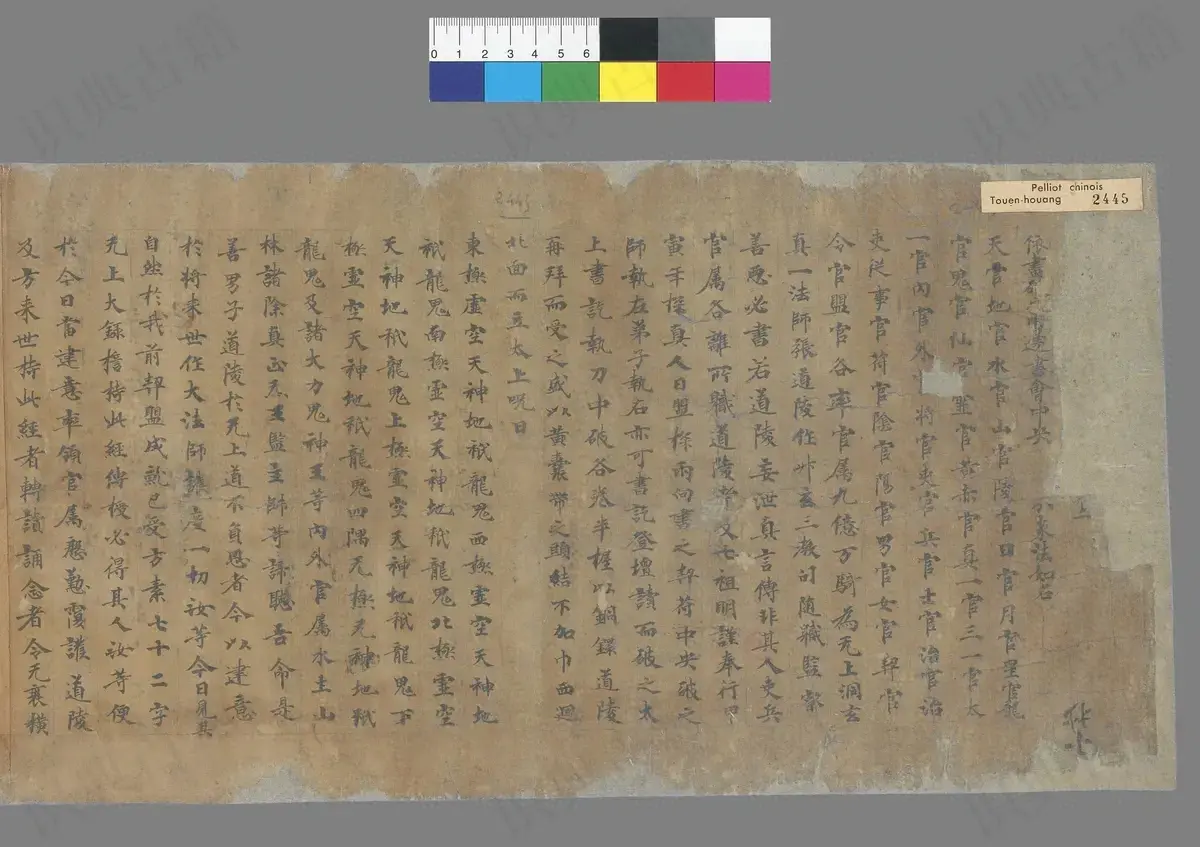 Pelliot chinois
Touen-houang 2445
0 1 2 3 4 5 6
2445
上
天官地官水官山官陵官日官月官星官龍
官鬼官仙官霊官黄赤官真一官三一官太
一官內官外 將官吏官兵官士官治官治
吏従事官苻官陰官陽官男官女官契官
令官盟官各率官属九億万騎為无上洞玄
真一法師張道陵作 玄三教 隨職監察
善惡必書若道陵妄泄真言傳非其人吏兵
官属各離所職道陵 父七祖明謹奉行甲
寅年 真人日盟 兩向書之契苻中央破之
師執左弟子執右亦可書訖登壇讀而破之太
上書訖執刀中破各 半 以銅鐷道陵
再拜而受之盛以黄囊帶之頭結不加巾西迴
北面而立太上呪曰
東極虛空天神地祇龍鬼西極霊空天神地
祇龍鬼南極霊空天神地祇龍鬼北極霊空
天神地祇龍鬼上極霊空天神地祇龍鬼下
極霊空天神地祇龍鬼四隅无極无神地祇
龍鬼及諸大力鬼神王等內外官属水土山
林諸除真 王監 師等諦聽吾命是
善男子道陵於无上道不負恩者今以建意
於將来世任大法師 度一切汝等今日見其
自然於我前契盟成就已受方素七十二字
无上大籙擔持此經傳授必得其人汝等便
於今日當建意率領官属懃覆護道陵
及方来世持此經者轉讀誦念者令无衰横
识典古籍